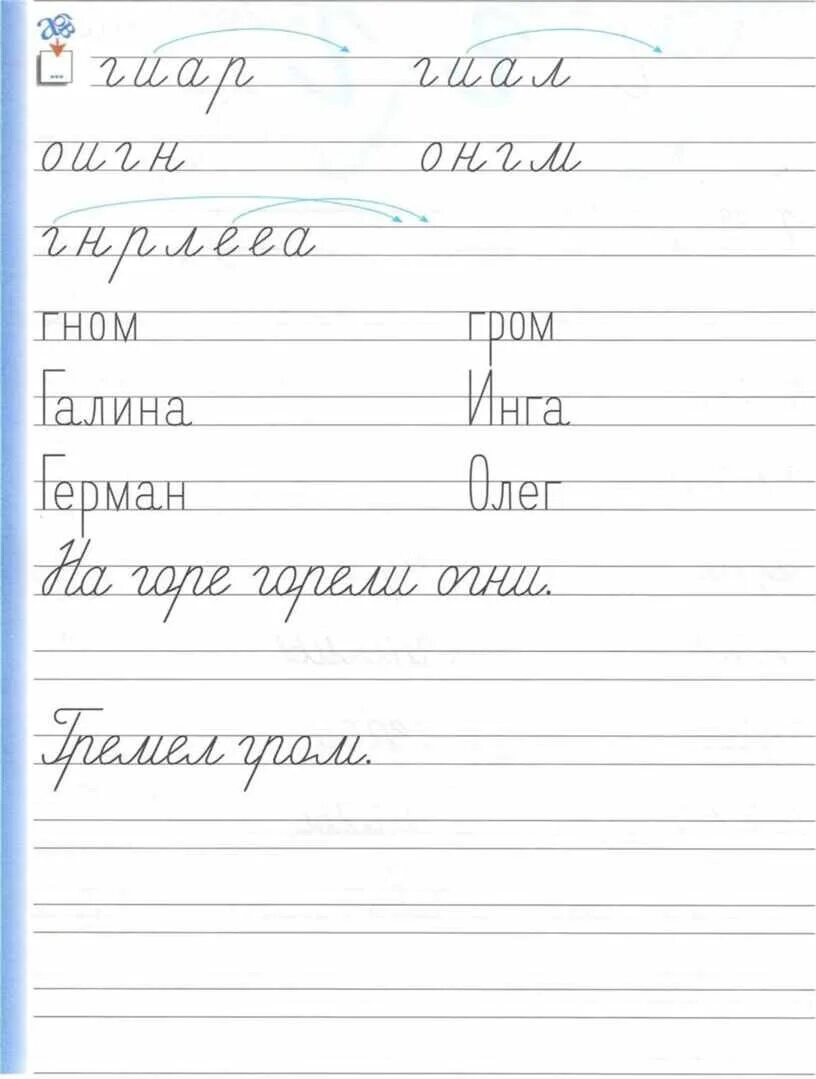 гиар гиал
оигн онгм
гнрлееа
гном гром
Галина Инга
Герман Олег
На горе горели огни.
Гремел гром.